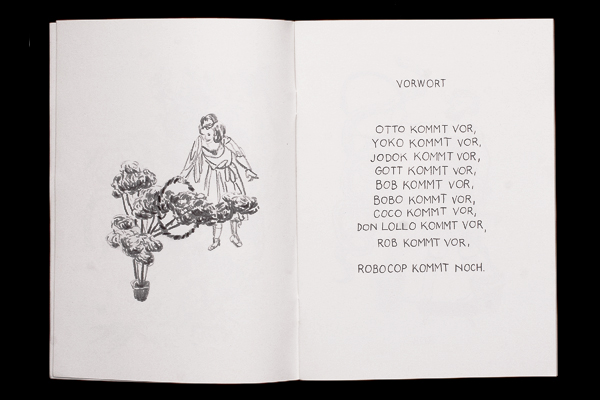 VORWORT
OTTO KOMMT VOR,
YOKO KOMMT VOR,
JODOK KOMMT VOR,
GOTT KOMMT VOR,
BOB KOMMT VOR,
BOBO KOMMT VOR,
COCO KOMMT VOR,
DON LOLLO KOMMT VOR,
ROB KOMMT VOR,
ROBOCOP KOMMT NOCH.